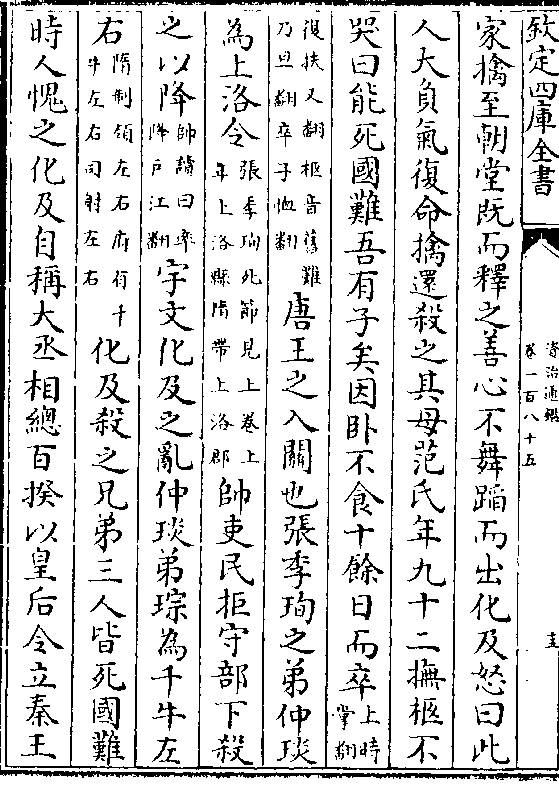 欽定四庫全書
資治通鑑
卷一百八十五
家擒至朝堂既而釋之善心不舞蹈而出化及怒曰此
人大負氣復命擒還殺之其母范氏年九十二撫柩不
哭曰能死國難吾有子矣因卧不食十餘日而卒上時掌翻
復扶又翻柩音舊難乃旦翻卒子恤翻唐王之入關也張季珣之弟仲琰
為上洛令張季珣死節見上卷上年上洛縣隋帶上洛郡帥吏民拒守部下殺
之以降帥讀曰率降戶江翻宇文化及之亂仲琰弟琮為千牛左
右隋制領左右府有千牛左右司射左右化及殺之兄弟三人皆死國難
時人愧之化及自稱大丞相總百揆以皇后令立秦王